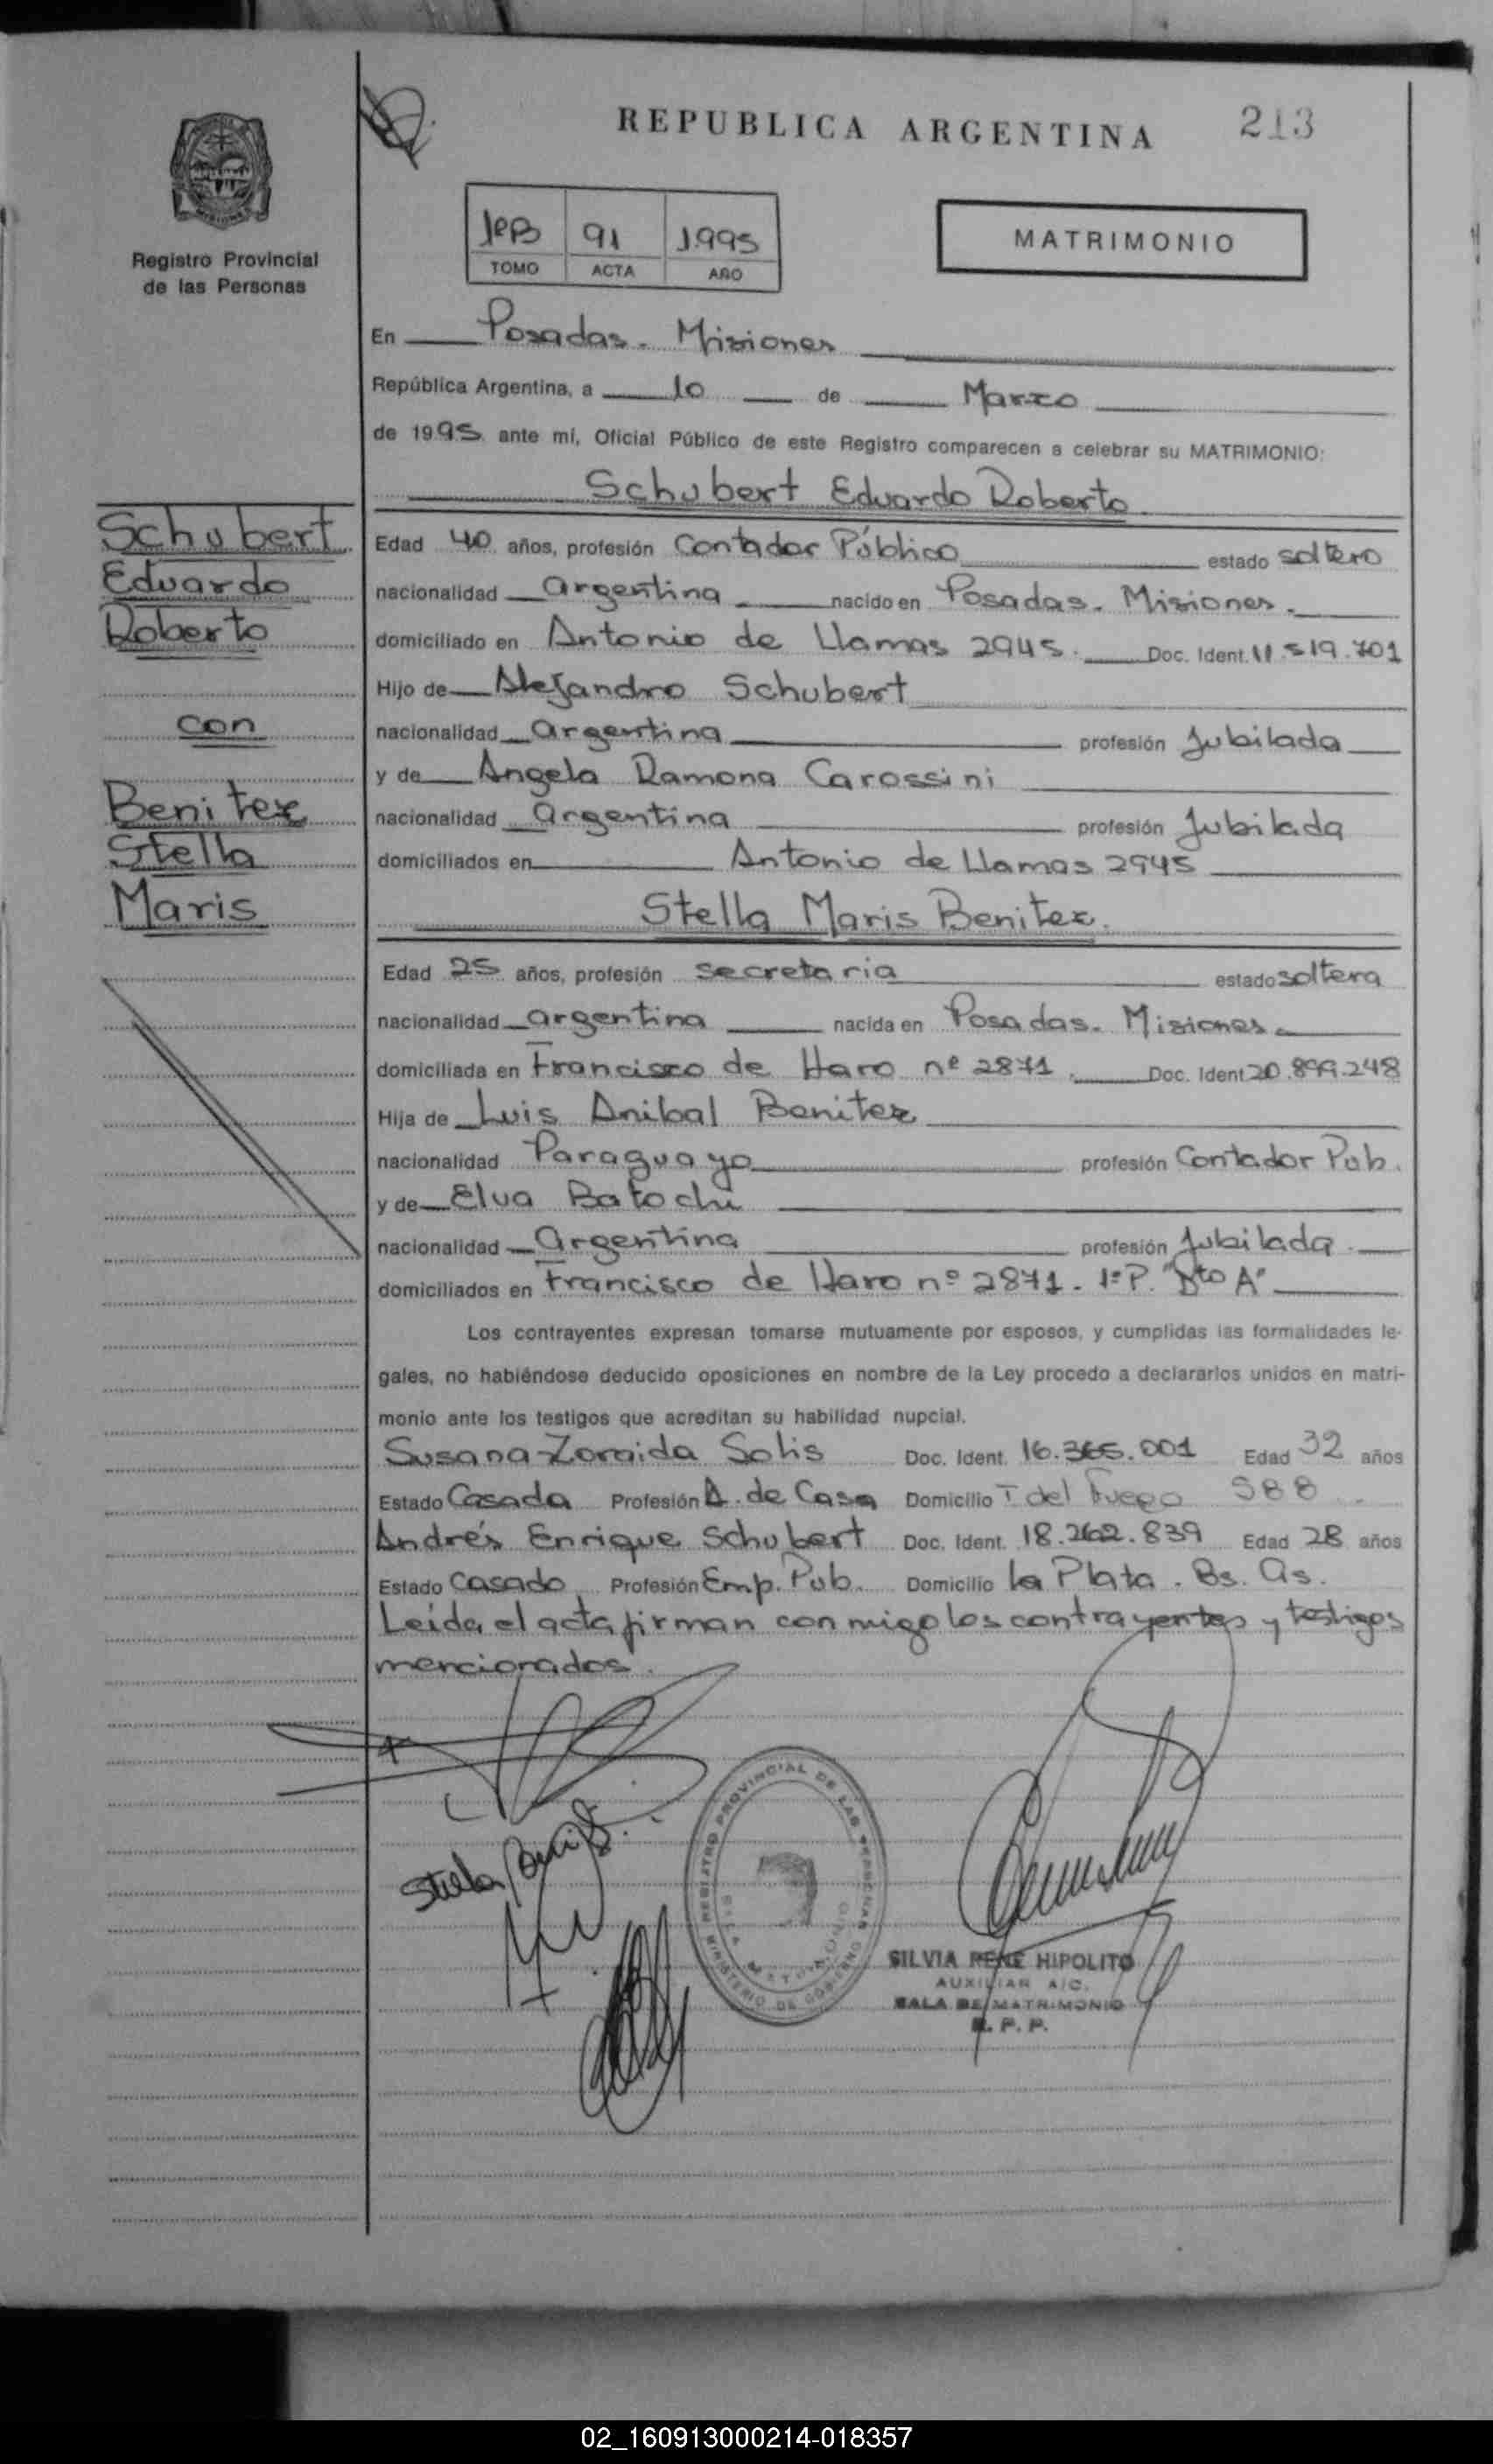 REPUBLICA ARGENTINA 213
Registro Provincial
de las Personas
1ºB 91 1995
TOMO ACTA AÑO
MATRIMONIO
En Posadas - Misiones
República Argentina, a 10 de Marzo
de 1995 ante mí, Oficial Público de este Registro comparecen a celebrar su MATRIMONIO:
Schubert Eduardo Roberto
Schubert
Eduardo
Roberto
con
Benitez
Stella
Maris
Edad 40 años, profesión Contador Público estado soltero
nacionalidad argentina nacido en Posadas - Misiones.
domiciliado en Antonio de Llamas 2945. Doc. Ident. 11.519.701
Hijo de Alejandro Schubert
nacionalidad argentina profesión Jubilada
y de Angela Ramona Carossini
nacionalidad argentina profesión Jubilada
domiciliados en Antonio de Llamas 2945
Stella Maris Benitez.
Edad 25 años, profesión secretaria estado soltera
nacionalidad argentina nacida en Posadas - Misiones
domiciliada en Francisco de Haro nº 2871. Doc. Ident 20.899.248
Hija de Luis Anibal Benitez
nacionalidad Paraguayo profesión Contador Pub.
y de Elva Batochi
nacionalidad argentina profesión Jubilada.
domiciliados en Francisco de Haro nº 2871 - 1º P. "Dto A"
Los contrayentes expresan tomarse mutuamente por esposos, y cumplidas las formalidades le-
gales, no habiéndose deducido oposiciones en nombre de la Ley procedo a declararlos unidos en matri-
monio ante los testigos que acreditan su habilidad nupcial.
Susana Zoraida Solis Doc. Ident. 16.365.001 Edad 32 años
Estado Casada Profesión A. de Casa Domicilio T del Fuego 588
Andrés Enrique Schubert Doc. Ident. 18.262.839 Edad 28 años
Estado Casado Profesión Emp. Pub. Domicilio La Plata. Bs. As.
Leída el acta firman con migo los contrayentes y testigos
mencionados.
REGISTRO PROVINCIAL DE LAS PERSONAS
MINISTERIO DE GOBIERNO
SILVIA RENE HIPOLITO
AUXILIAR A/C.
SALA DE MATRIMONIO
R. P. P.
02_160913000214-018357